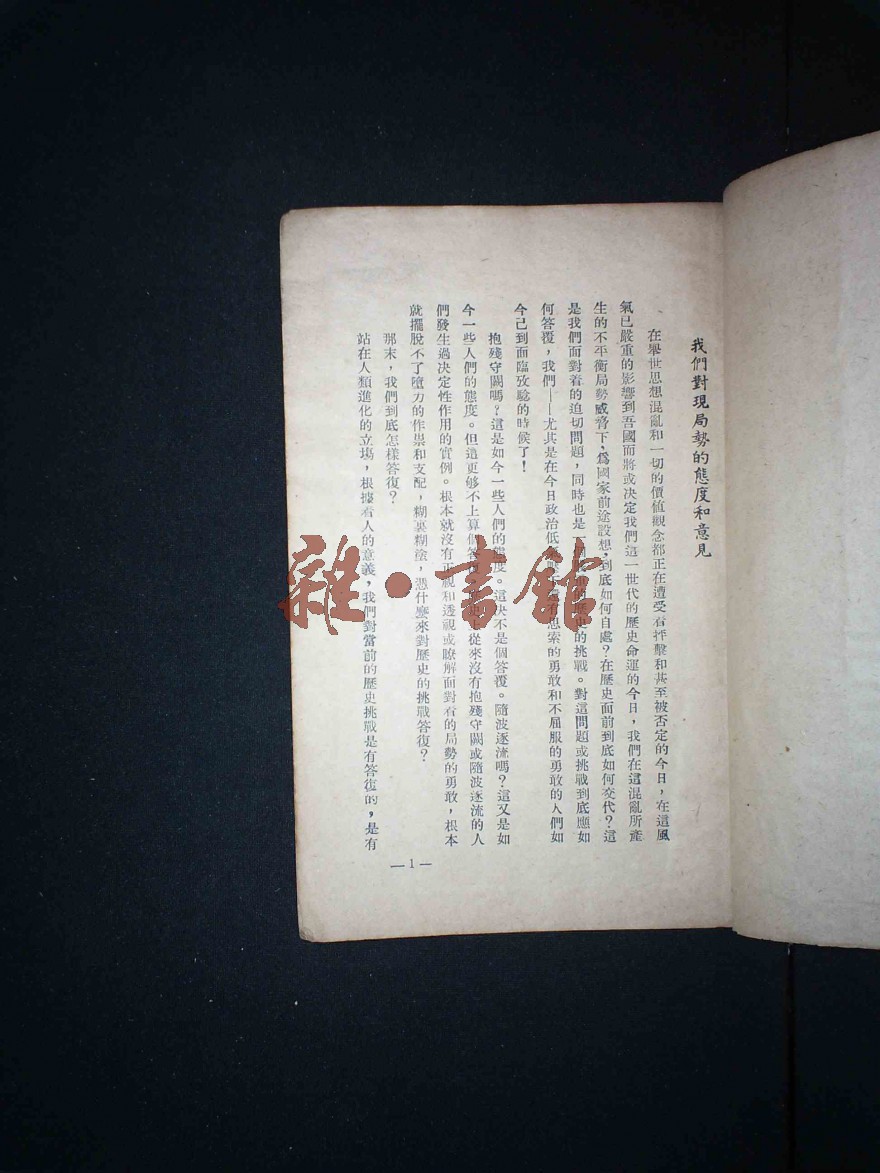 我們對現局勢的態度和意見
在舉世思想混亂和一切的價值觀念都正在遭受着抨擊和甚至被否定的今日，在這風
氣已嚴重的影響到吾國而將或决定我們這一世代的歷史命運的今日，我們在這混亂所產
生的不平衡局勢威脅下，爲國家前途設想，到底如何自處？在歷史面前到底如何交代？這
是我們面對着的迫切問題，同時也是一個 的歷史的挑戰。對這問題或挑戰到底應如
何答覆，我們——尤其是在今日政治低 有思索的勇敢和不屈服的勇敢的人們如
今已到面臨攷驗的時候了！
抱殘守闕嗎？這是如今一些人們的態度。這决不是個答覆。隨波逐流嗎？這又是如
今一些人們的態度。但這更够不上算個答復。 上從來沒有抱殘守闕或隨波逐流的人
們發生過决定性作用的實例。根本就沒有正視和透視或瞭解面對着的局勢的勇敢，根本
就擺脫不了墮力的作祟和支配，糊裏糊塗，憑什麼來對歷史的挑戰答復？
那末，我們到底怎樣答復？
站在人類進化的立場，根據着人的意義，我們對當前的歷史挑戰是有答復的，是有
—1—
雜·書館